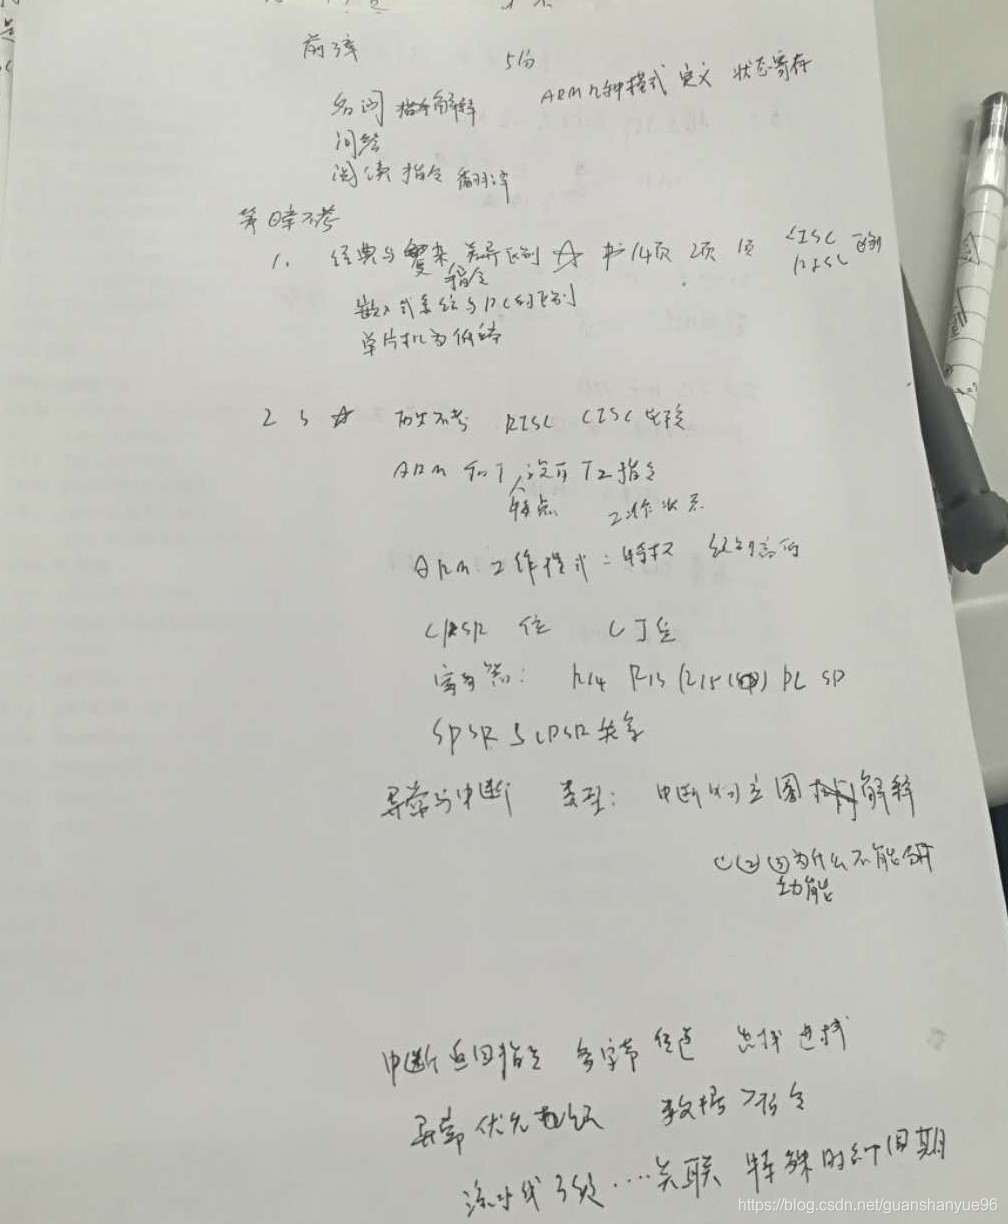 前3章 5份
名词 指令解释 ARM 几种模式 定义 状态寄存
问答
阅读 指令 翻译
第 章不考
1. 经典与 差异区别 ☆ 书14页 2页 1页 CISC RISC 区别
指令
嵌入式系统与PC的区别
单片机为低端
2 3 ☆ 历史不考 RISC CISC
ARM 和T 没有 T2指令
特点 工作状态
ARM 工作模式: 特权 级别高低
CPSR 位 T位
寄存器: R14 R13 R15 PC SP
SPSR 与 CPSR 关系
异常与中断 类型: 中断 图 解释
(1)(2)(3)为什么不能
功能
中断返回指令 多字节 出栈 进栈
异常优先级 数据 > 指令
流水线 3级 .... 关联 特殊 周期
https://blog.csdn.net/guanshanyue96